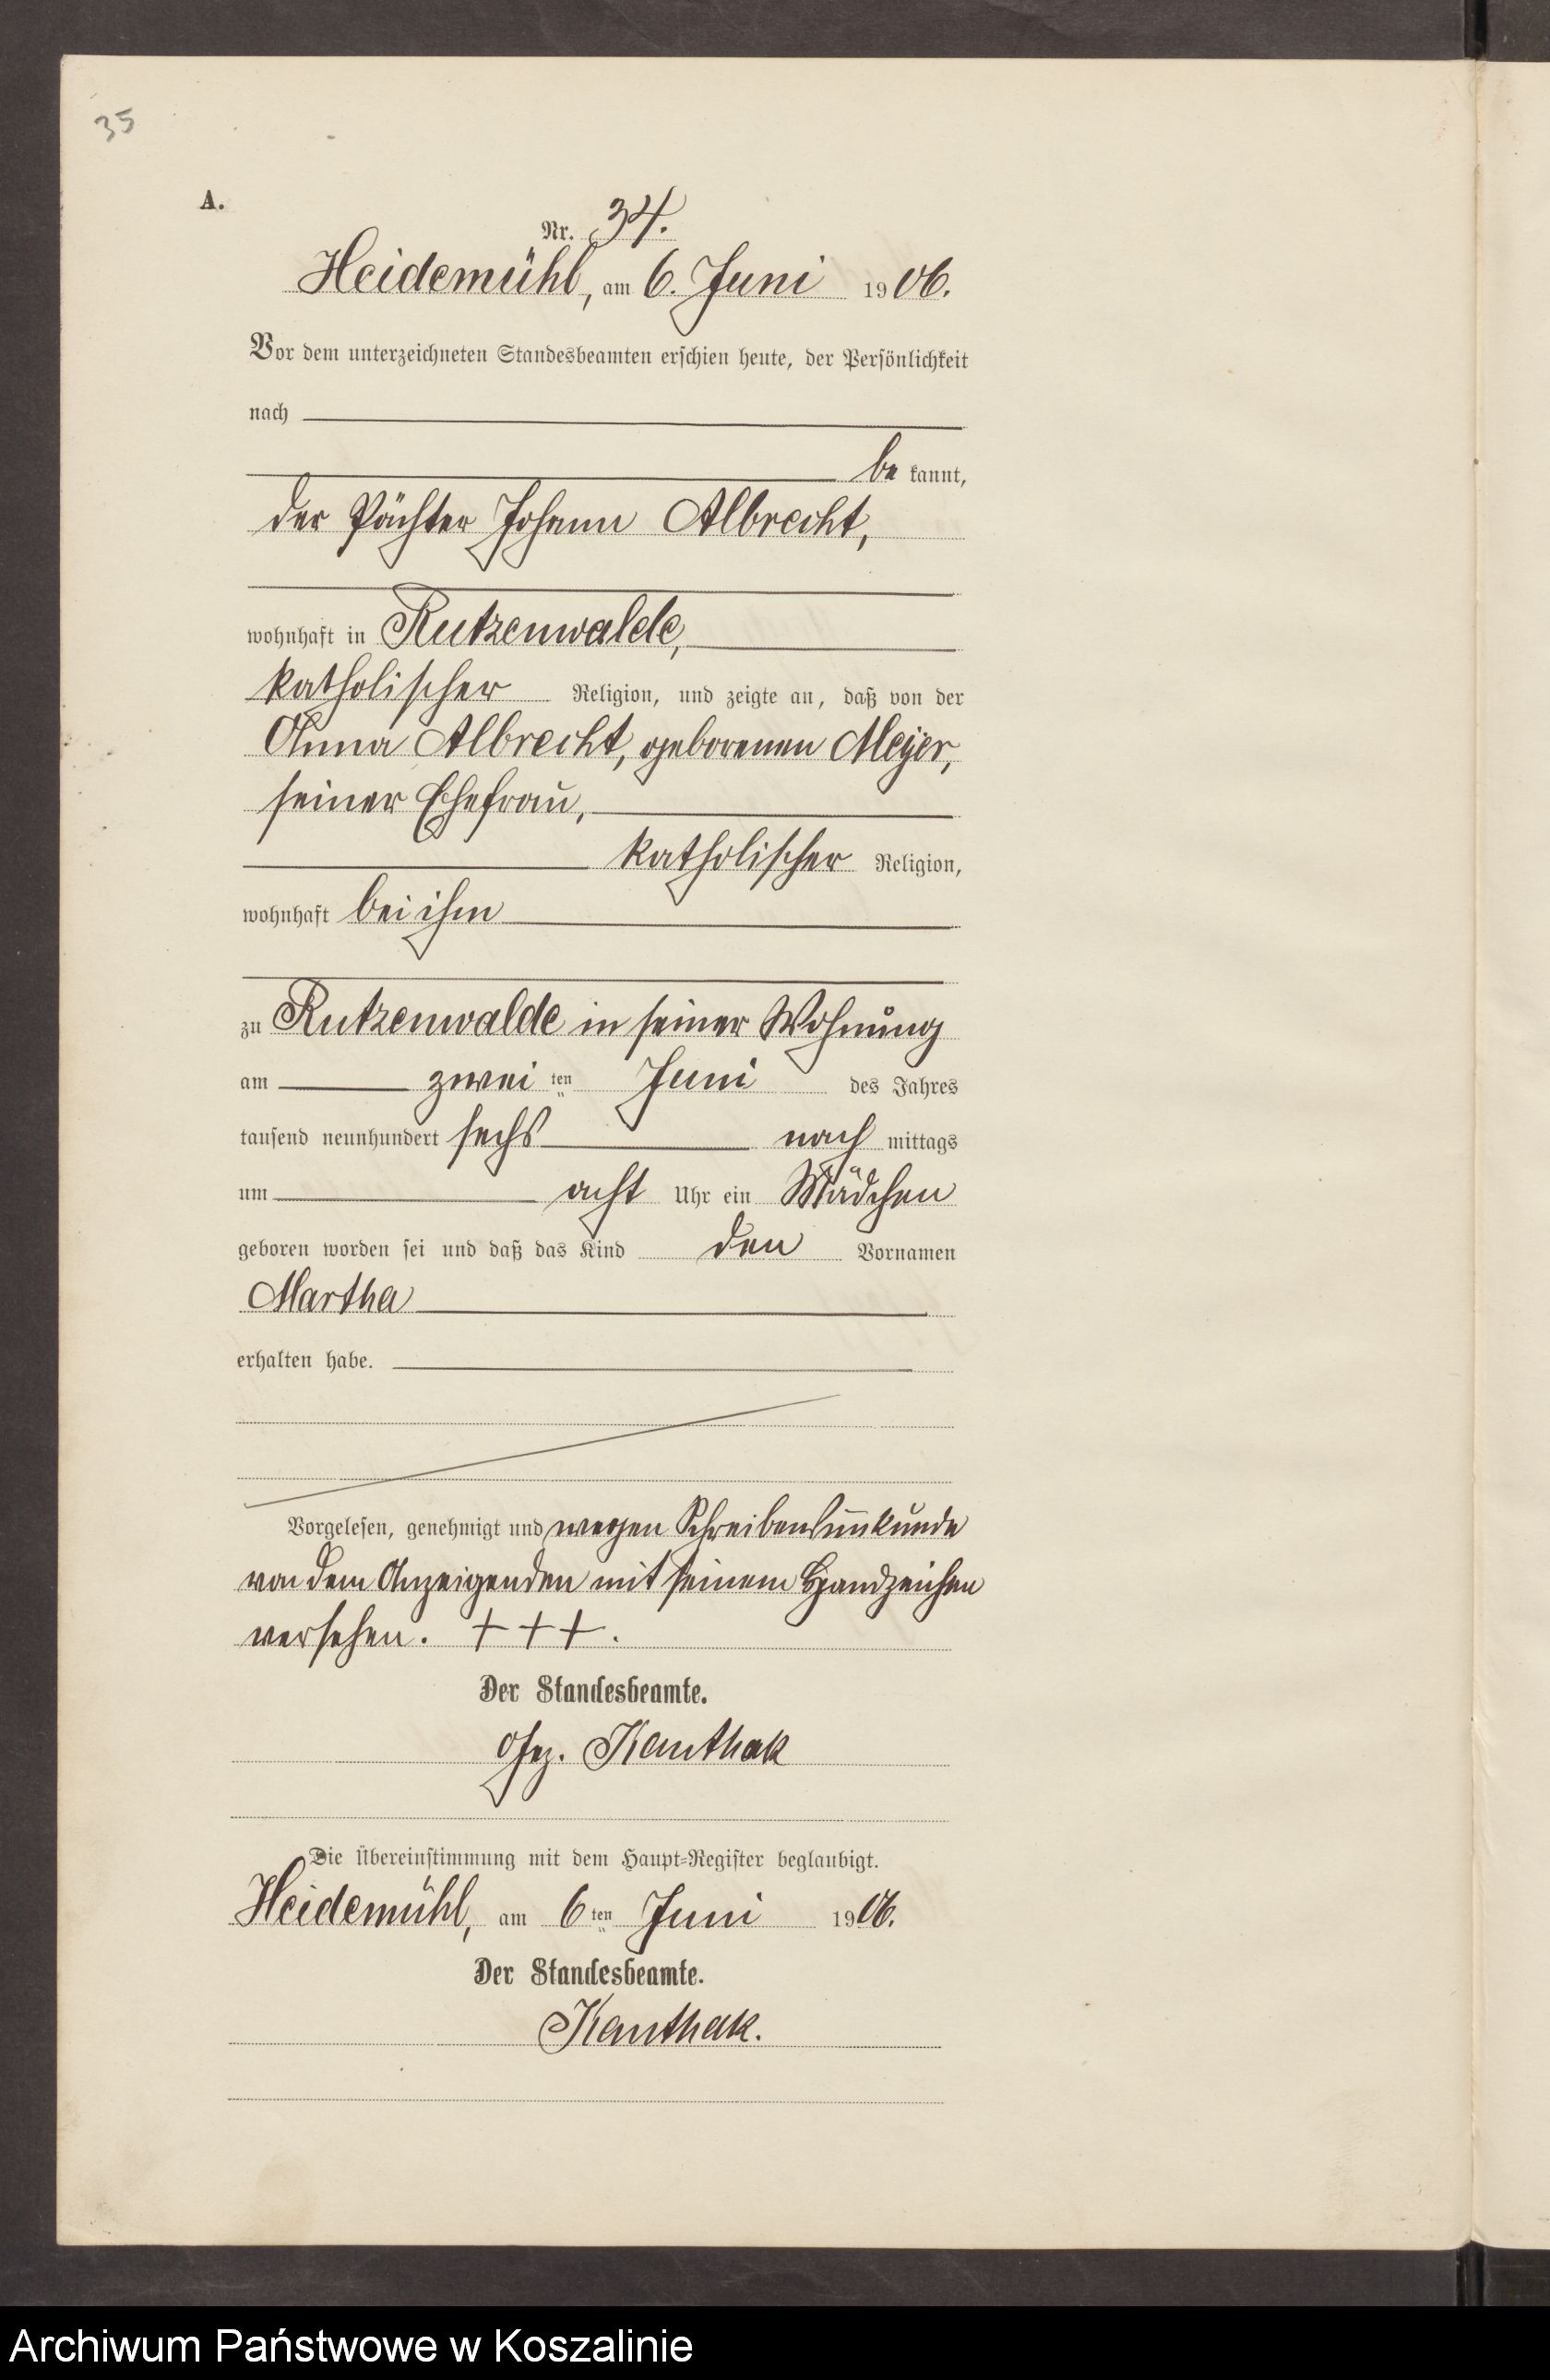 35
A.
Nr. 34.
Heidemühl, am 6. Juni 1906.
Vor dem unterzeichneten Standesbeamten erschien heute, der Persönlichkeit
nach
be kannt,
der Pächter Johann Albrecht,
wohnhaft in Rutzenwalde,
katholischer Religion, und zeigte an, daß von der
Anna Albrecht, geborenen Meyer,
seiner Ehefrau,
katholischer Religion,
wohnhaft bei ihm
zu Rutzenwalde in seiner Wohnung
am zwei ten Juni des Jahres
tausend neunhundert sechs nach mittags
um acht Uhr ein Mädchen
geboren worden sei und daß das Kind den Vornamen
Martha
erhalten habe.
Vorgelesen, genehmigt und wegen Schreibensunkunde
von dem Anzeigenden mit seinem Handzeichen
versehen. +++.
Der Standesbeamte.
Gez. Kanthak
Die Übereinstimmung mit dem Haupt-Register beglaubigt.
Heidemühl, am 6ten Juni 1906.
Der Standesbeamte.
Kanthak.
Archiwum Państwowe w Koszalinie